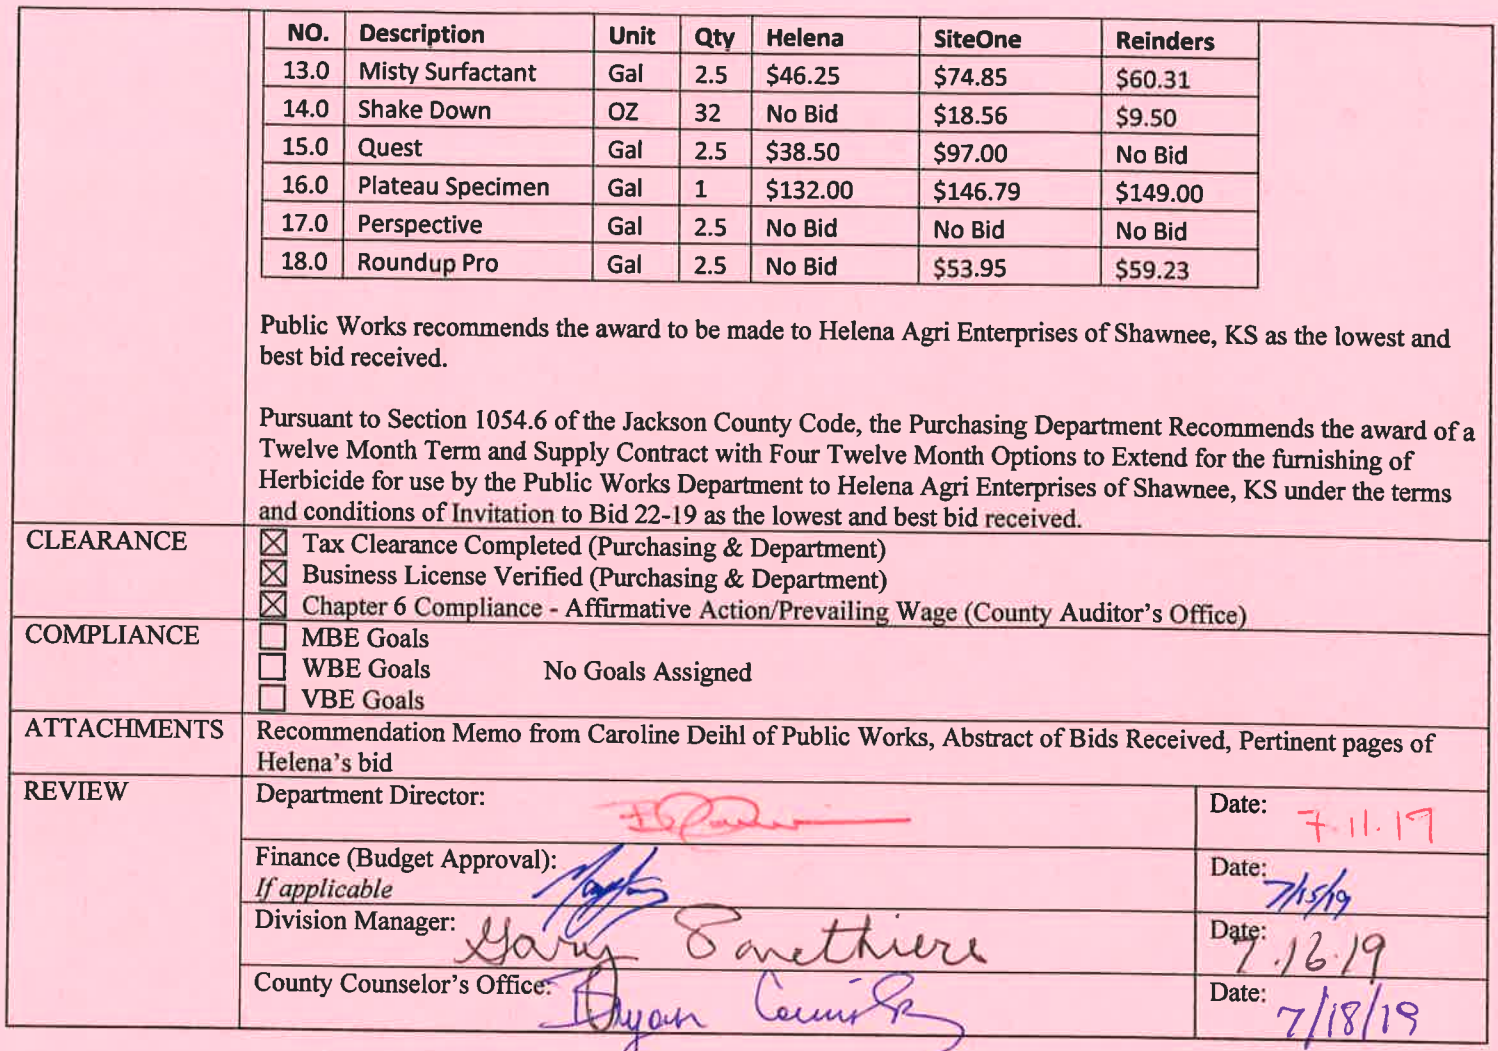 NO. Description Unit Qty Helena SiteOne Reinders
13.0 Misty Surfactant Gal 2.5 $46.25 $74.85 $60.31
14.0 Shake Down OZ 32 No Bid $18.56 $9.50
15.0 Quest Gal 2.5 $38.50 $97.00 No Bid
16.0 Plateau Specimen Gal 1 $132.00 $146.79 $149.00
17.0 Perspective Gal 2.5 No Bid No Bid No Bid
18.0 Roundup Pro Gal 2.5 No Bid $53.95 $59.23
Public Works recommends the award to be made to Helena Agri Enterprises of Shawnee, KS as the lowest and
best bid received.
Pursuant to Section 1054.6 of the Jackson County Code, the Purchasing Department Recommends the award of a
Twelve Month Term and Supply Contract with Four Twelve Month Options to Extend for the furnishing of
Herbicide for use by the Public Works Department to Helena Agri Enterprises of Shawnee, KS under the terms
and conditions of Invitation to Bid 22-19 as the lowest and best bid received.
CLEARANCE
☒ Tax Clearance Completed (Purchasing & Department)
☒ Business License Verified (Purchasing & Department)
☒ Chapter 6 Compliance - Affirmative Action/Prevailing Wage (County Auditor's Office)
COMPLIANCE
☐ MBE Goals
☐ WBE Goals No Goals Assigned
☐ VBE Goals
ATTACHMENTS
Recommendation Memo from Caroline Deihl of Public Works, Abstract of Bids Received, Pertinent pages of
Helena's bid
REVIEW
Department Director: Date: 7.11.19
Finance (Budget Approval): Date: 7/15/19
If applicable
Division Manager: Gary Panethiere Date: 7.16.19
County Counselor's Office: Bryan Date: 7/18/19